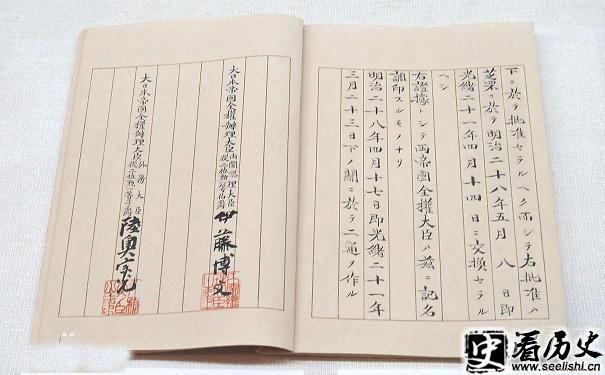 下ニ於テ批准セラルヘク而シテ右批准ハ
芝罘ニ於テ明治二十八年五月八日即
光緒二十一年四月十四日ニ交換セラル
ヘシ
右證據トシテ両帝國全權大臣ハ茲ニ記名
調印スルモノナリ
明治二十八年四月十七日即光緒二十一年
三月二十三日下ノ關ニ於テ二通ヲ作ル
大日本帝國全權辦理大臣
內閣總理大臣
從二位勳一等伯爵
伊藤博文
大日本帝國全權辦理大臣
外務大臣
從二位勳一等子爵
陸奥宗光
史看历史
www.seelishi.cn